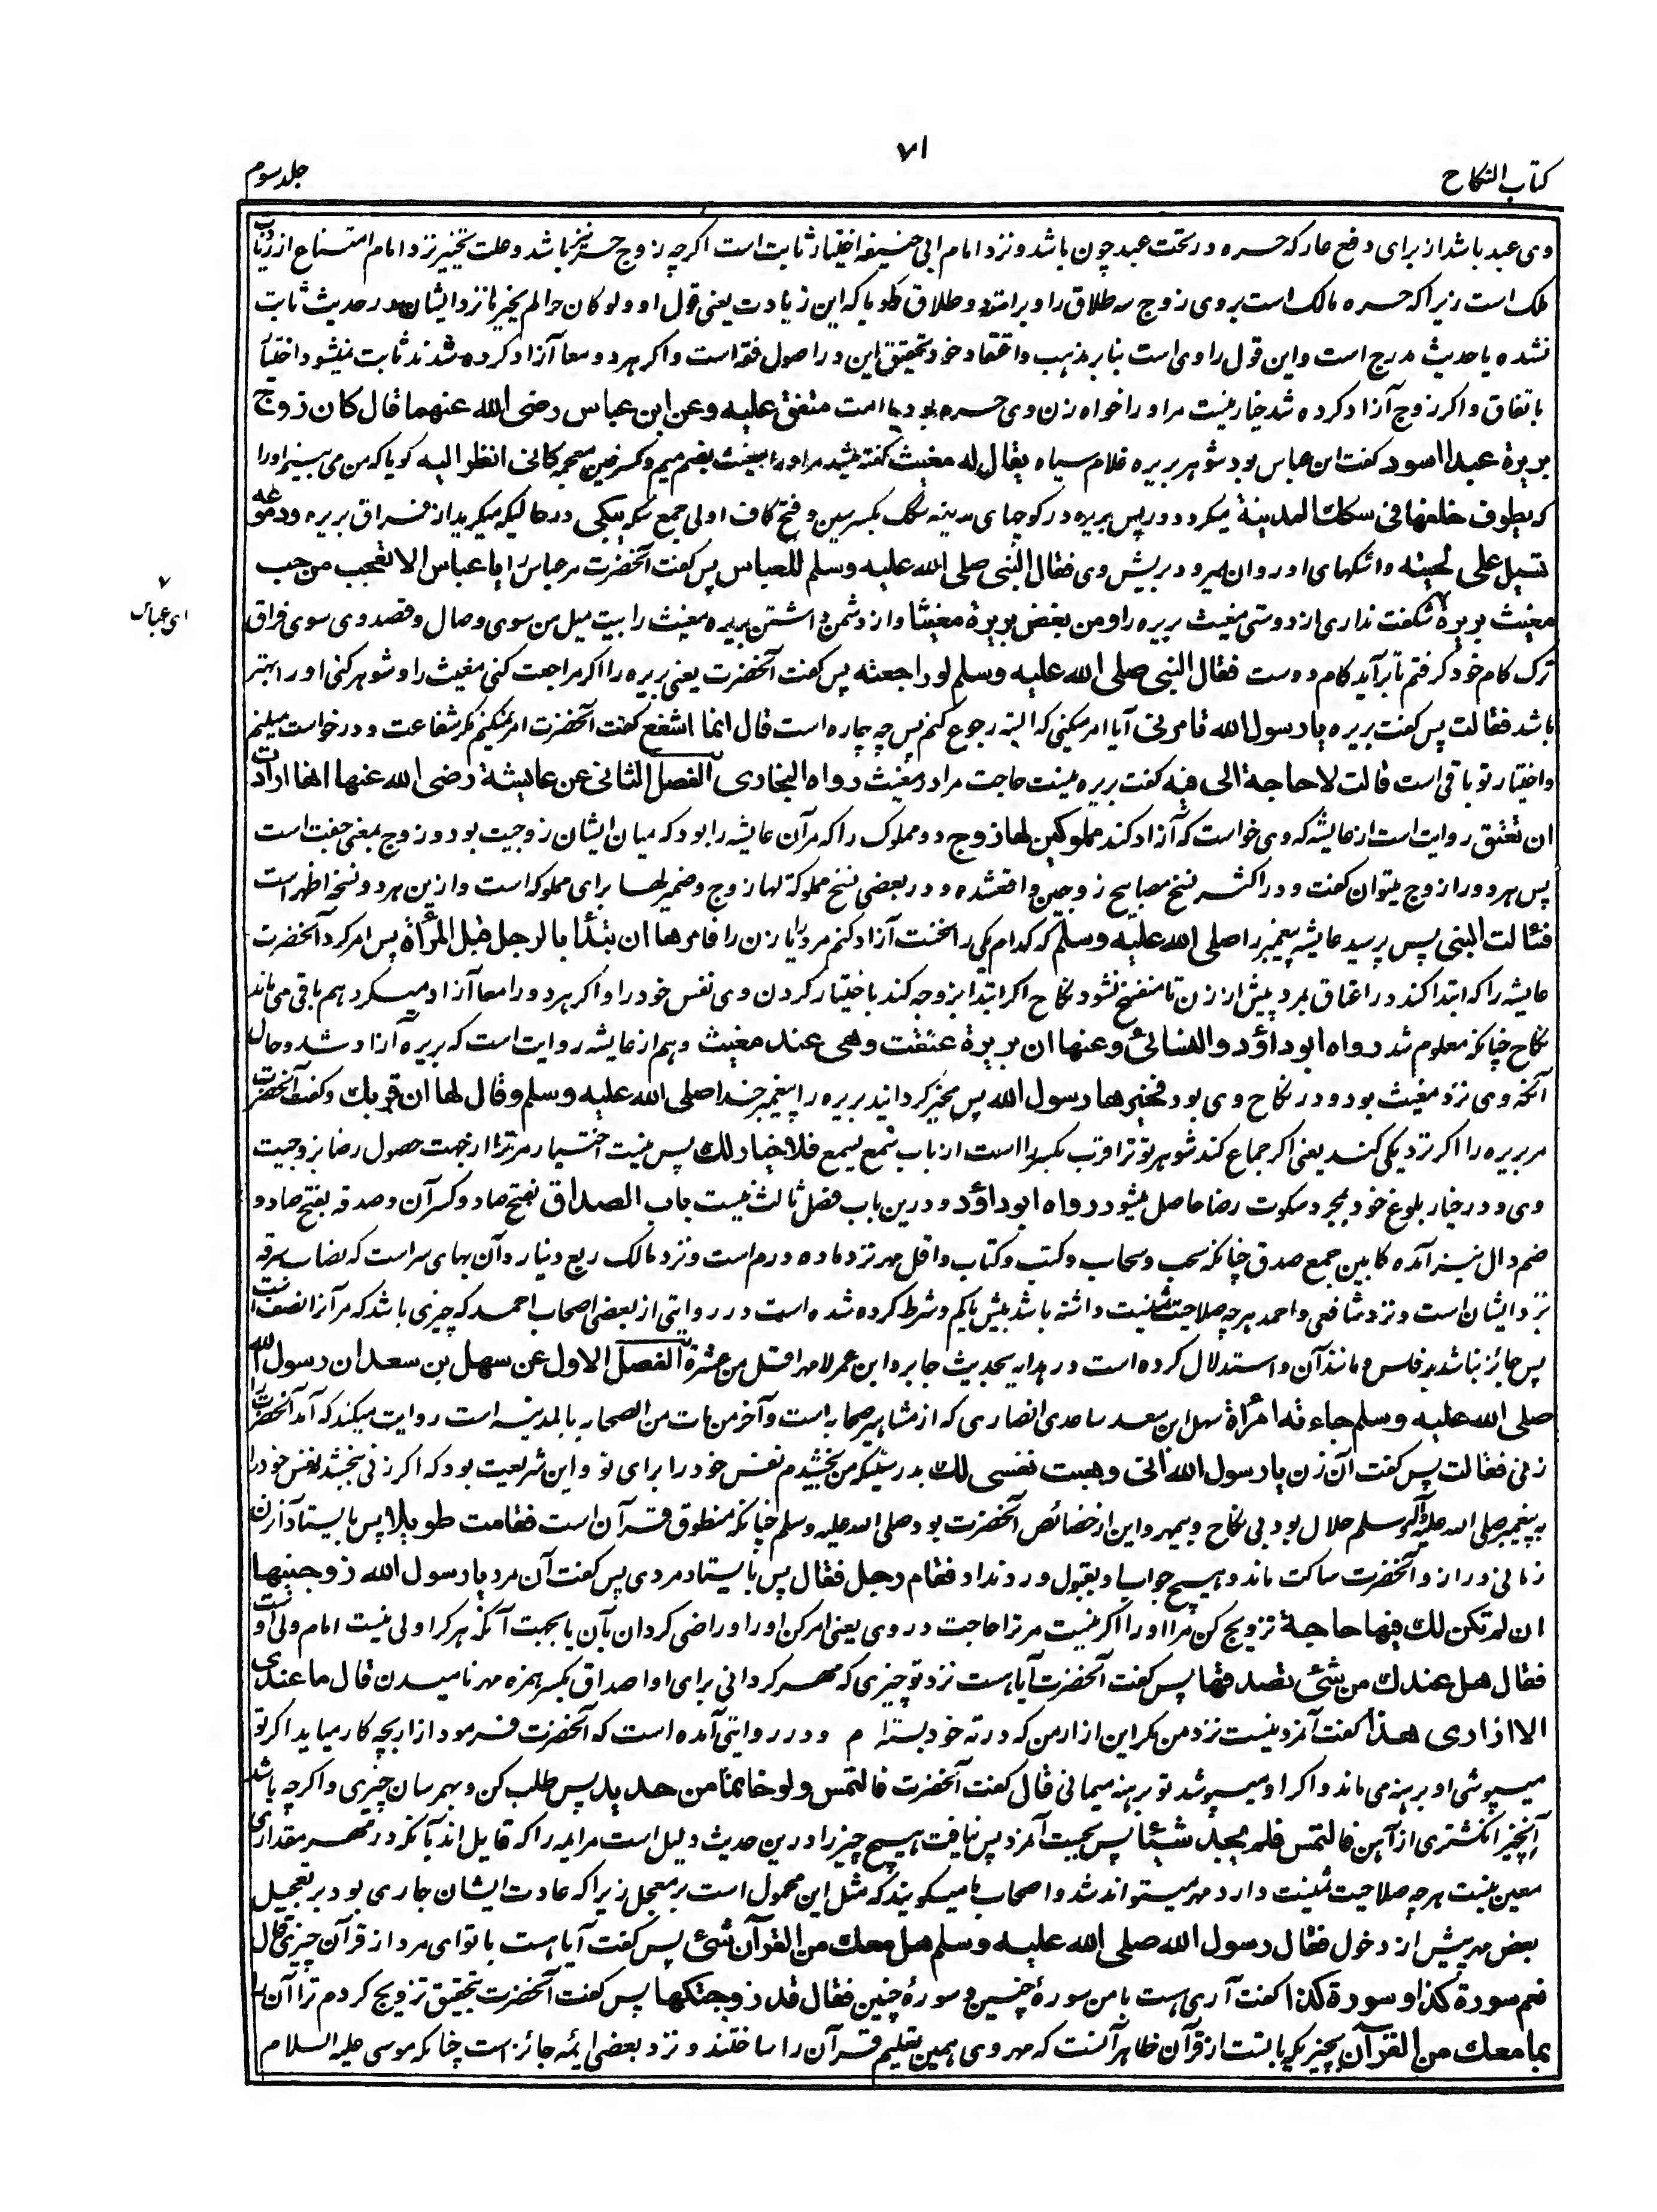 ۷۱
کتاب النکاح
جلد سوم
وی عبد باشد از برای دفع عار که حره در تحت عبد چون باشد و نزد امام ابی حنیفه اختیار ثابت است اگرچه زوج حر نیز باشد و علت تخییر نزد امام امتناع از زیادت
ملک است زیرا که حره مالک است بر وی زوج سه طلاق را و بر امته دو طلاق گویا که این زیادت یعنی قول او ولو کان حرا لم یخیرها نزد ایشان در حدیث ثابت
نشده یا حدیث مدرج است و این قول راوی است بنابر مذهب و اعتقاد خود تحقیق این در اصول فقه است و اگر هر دو معا آزاد کرده شدند ثابت نمیشود اختیار
باتفاق و اگر زوج آزاد کرده شد خیار نیست مر او را خواه زن وی حره بود یا امت متفق علیه وعن ابن عباس رضی الله عنهما قال کان زوج
بریرة عبدا اسود گفت ابن عباس بود شوهر بریره غلام سیاه یقال له مغیث گفته میشد مر او را مغیث بضم میم و کسر غین معجمه کانی انظر الیه گویا که من می بینم او را
که یطوف خلفها فی سکک المدینة میگردد در پس بریره در کوچهای مدینه سکک بکسر سین و فتح کاف اولی جمع سکه یبکی در حالیکه میگرید از فراق بریره ودموعه
تسیل علی لحیته و اشکهای او روان میرود بریش وی فقال النبی صلی الله علیه وسلم للعباس پس گفت آنحضرت مر عباس را یا عباس الا تعجب من حب
ای عباس
مغیث بریرة شگفت نداری از دوستی مغیث بریره را ومن بغض بریرة مغیثا و از دشمن داشتن بریره مغیث را بیت میل من سوی وصال و قصد وی سوی فراق
ترک کام خود گرفتم تا برآید کام دوست فقال النبی صلی الله علیه وسلم لو راجعته پس گفت آنحضرت یعنی بریره را اگر مراجعت کنی مغیث را و شوهر کنی او را بهتر
باشد فقالت پس گفت بریره یا رسول الله تامرنی آیا امر میکنی که البته رجوع کنم پس چه چاره است قال انما اشفع گفت آنحضرت امر نمیکنم مگر شفاعت و درخواست میکنم
و اختیار تو باقی است قالت لا حاجة لی فیه گفت بریره نیست حاجت مرا در مغیث رواه البخاری الفصل الثانی عن عایشة رضی الله عنها انها ارادت
ان تعتق روایت است از عایشه که وی خواست که آزاد کند مملوکین لها زوج دو مملوک را که مر آن عایشه را بود که میان ایشان زوجیت بود و زوج بمعنی جفت است
پس هر دو را زوج میتوان گفت و در اکثر نسخ مصابیح زوجین واقع شده و در بعضی نسخ مملوکة لها زوج و ضمیر لها برای مملوکه است و ازین هر دو نسخه اظهر است
فسالت النبی پس پرسید عایشه پیغمبر را صلی الله علیه وسلم که کدام یکی را نخست آزاد کنم مرد را یا زن را فامرها ان تبدأ بالرجل قبل المرأة پس امر کرد آنحضرت
عایشه را که ابتدا کند در اعتاق بمرد پیش از زن تا منفسخ نشود نکاح اگر ابتدا بزوجه کند باختیار کردن وی نفس خود را و اگر هر دو را معا آزاد میکرد هم باقی می ماند
نکاح چنانکه معلوم شد رواه ابو داؤد والنسائی وعنها ان بریرة عتقت وهی عند مغیث و هم از عایشه روایت است که بریره آزاد شد و حال
آنکه وی نزد مغیث بود و در نکاح وی بود فخیرها رسول الله پس مخیر گردانید بریره را پیغمبر خدا صلی الله علیه وسلم وقال لها ان قربک و گفت آنحضرت
مر بریره را اگر نزدیکی کند یعنی اگر جماع کند شوهر تو ترا قرب بکسر را است از باب سمع یسمع فلا خیار لک پس نیست اختیار مر ترا از جهت حصول رضا بزوجیت
وی و در خیار بلوغ خود بمجرد سکوت رضا حاصل میشود رواه ابو داؤد و درین باب فصل ثالث نیست باب الصداق بفتح صاد و کسر آن و صدقه بفتح صاد و
ضم دال نیز آمده کابین جمع صدق چنانکه سحب و سحاب و کتب و کتاب و اقل مهر نزد ما ده درم است و نزد مالک ربع دینار و آن بهای سر است که نصاب سرقه
نزد ایشان است و نزد شافعی و احمد هرچه صلاحیت ثمنیت داشته باشد بیش یا کم و شرط کرده شده است در روایتی از بعضی اصحاب احمد که چیزی باشد که مر آنرا نصف است
پس جائز نباشد بفلس و مانند آن و استدلال کرده است در هدایه بحدیث جابر و ابن عمر لا مهر اقل من عشرة الفصل الاول عن سهل بن سعد ان رسول الله
صلی الله علیه وسلم جاءته امرأة سهل ابن سعد ساعدی انصاری که از مشاهیر صحابه است و آخر من مات من الصحابه بالمدینه است روایت میکند که آمد آنحضرت را
زنی فقالت پس گفت آن زن یا رسول الله انی وهبت نفسی لک بدرستیکه من بخشیدم نفس خود را برای تو و این شریعت بود که اگر زنی بخشد نفس خود را
به پیغمبر صلی الله علیه وآله وسلم حلال بود بی نکاح و بیمهر و این از خصائص آنحضرت بود صلی الله علیه وسلم چنانکه منطوق قرآن است فقامت طویلا پس بایستاد آنزن
زمانی دراز و آنحضرت ساکت ماند و هیچ جواب او بقبول و رد نداد فقام رجل فقال پس بایستاد مردی پس گفت آن مرد یا رسول الله زوجنیها
ان لم تکن لک فیها حاجة تزویج کن مرا او را اگر نیست مر ترا حاجت در وی یعنی امر کن او را و راضی گردان بآن یا بجهت آنکه هر کرا ولی نیست امام ولی اوست
فقال هل عندک من شیء تصدقها پس گفت آنحضرت آیا هست نزد تو چیزی که مهر گردانی برای او اصداق بکسر همزه مهر نامیدن قال ما عندی
الا ازاری هذا گفت آنمرد نیست نزد من مگر این ازار من که در ته خود بسته ام و در روایتی آمده است که آنحضرت فرمود ازار بچه کار میاید اگر تو
میپوشی او برهنه می ماند و اگر او میپوشد تو برهنه میمانی قال گفت آنحضرت فالتمس ولو خاتما من حدید پس طلب کن و بهمرسان چیزی و اگرچه باشد
آنچیز انگشتری از آهن فالتمس فلم یجد شیئا پس بجست آنمرد پس نیافت هیچ چیز را درین حدیث دلیل است مر ایمه را که قایل اند بآنکه در مهر مقداری
معین نیست هرچه صلاحیت ثمنیت دارد مهر میتواند شد و اصحاب ما میگویند که مثل این محمول است بر معجل زیرا که عادت ایشان جاری بود بر تعجیل
بعض مهر پیش از دخول فقال رسول الله صلی الله علیه وسلم هل معک من القرآن شیء پس گفت آیا هست با تو ای مرد از قرآن چیزی قال
نعم سورة کذا وسورة کذا گفت آری هست با من سورۀ چنین و سورۀ چنین فقال قد زوجتکها پس گفت آنحضرت بتحقیق تزویج کردم ترا آن را
بما معک من القرآن بچیزیکه با تست از قرآن ظاهر آنست که مهر وی همین تعلیم قرآن را ساختند و نزد بعضی ایمه جائز است چنانکه موسی علیه السلام